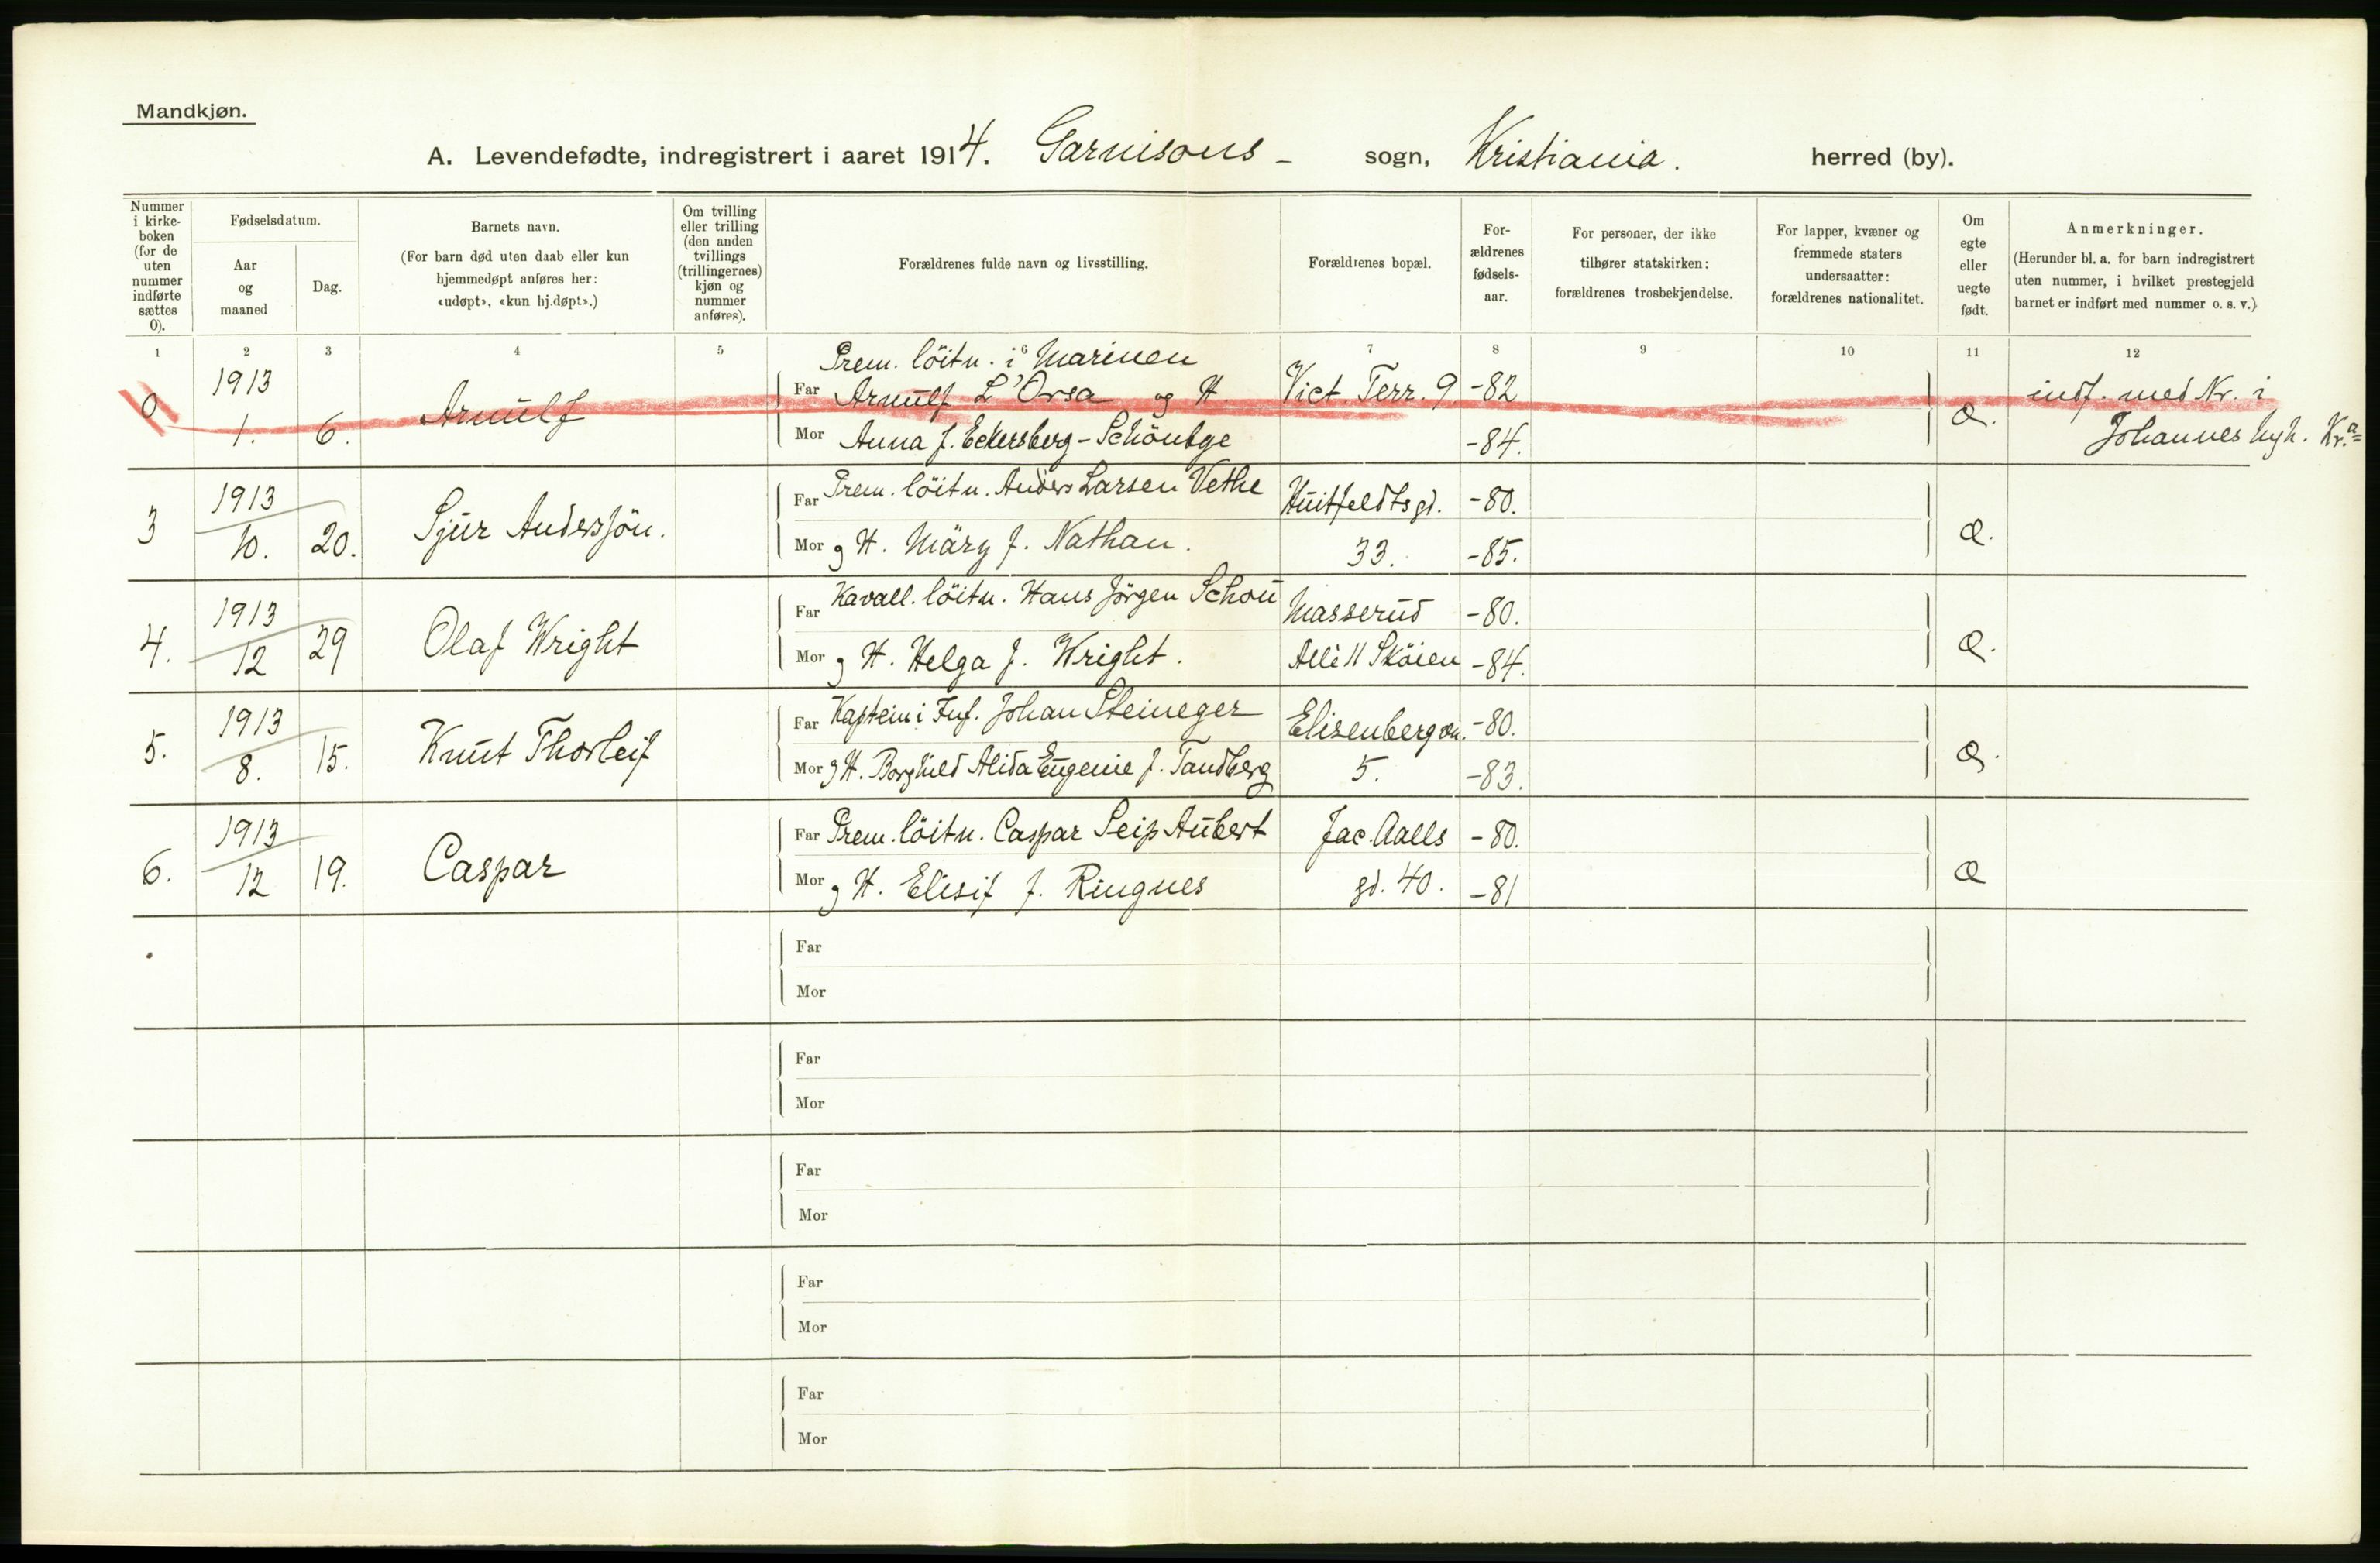 Mandkjøn.
A. Levendefødte, indregistrert i aaret 1914. Garnisons- sogn, Kristiania. herred (by).
Nummer i kirke-boken (for de uten nummer indførte sættes 0).
Fødselsdatum.
Aar og maaned
Dag.
Barnets navn.
(For barn død uten daab eller kun hjemmedøpt anføres her: «udøpt», «kun hj.døpt».)
Om tvilling eller trilling (den anden tvillings (trillingernes) kjøn og nummer anføres).
Forældrenes fulde navn og livsstilling.
Forældrenes bopæl.
For-ældrenes fødsels-aar.
For personer, der ikke tilhører statskirken: forældrenes trosbekjendelse.
For lapper, kvæner og fremmede staters undersaatter: forældrenes nationalitet.
Om egte eller uegte født.
Anmerkninger.
(Herunder bl. a. for barn indregistrert uten nummer, i hvilket prestegjeld barnet er indført med nummer o. s. v.)
1 2 3 4 5 6 7 8 9 10 11 12
Prem. löitn. i Marinen
0 1913 1. 6. Arnulf Far Arnulf L'Orsa og H. Vict. Terr. 9 -82 Æ. indf. med Nr. i
Mor Anna f. Eckersberg-Schöntge -84. Johannes kgh. Kr.a
3 1913 10. 20. Sjur Andersjön. Far Prem. löitn. Anders Larsen Vethe Huitfeldtsgd. -80. Æ.
Mor g H. Mary f. Nathan. 33. -85.
4. 1913 12 29 Olaf Wright Far Kavall. löitn. Hans Jörgen Schou Masserud -80. Æ.
Mor g H. Helga f. Wright. Allè 11 Sköien -84.
5. 1913 8. 15. Knut Thorleif Far Kaptein i Inf. Johan Steineger Elisenbergvn. -80. Æ.
Mor g H. Borghild Alida Eugenie f. Tandberg 5. -83.
6. 1913 12 19. Caspar Far Prem. löitn. Caspar Seip Aubert Jac. Aalls -80. Æ
Mor g H. Elisif f. Ringnes gd. 40. -81
Far
Mor
Far
Mor
Far
Mor
Far
Mor
Far
Mor